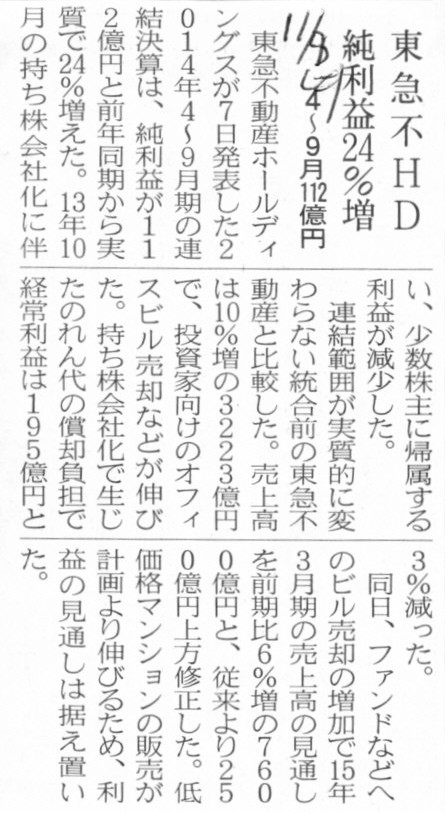 東急不HD
純利益24%増
4〜9月112億円
11/8
　東急不動産ホールディ
ングスが7日発表した2
014年4〜9月期の連
結決算は、純利益が11
2億円と前年同期から実
質で24%増えた。13年10
月の持ち株会社化に伴
い、少数株主に帰属する
利益が減少した。
　連結範囲が実質的に変
わらない統合前の東急不
動産と比較した。売上高
は10%増の3223億円
で、投資家向けのオフィ
スビル売却などが伸び
た。持ち株会社化で生じ
たのれん代の償却負担で
経常利益は195億円と
3%減った。
　同日、ファンドなどへ
のビル売却の増加で15年
3月期の売上高の見通し
を前期比6%増の760
0億円と、従来より25
0億円上方修正した。低
価格マンションの販売が
計画より伸びるため、利
益の見通しは据え置い
た。